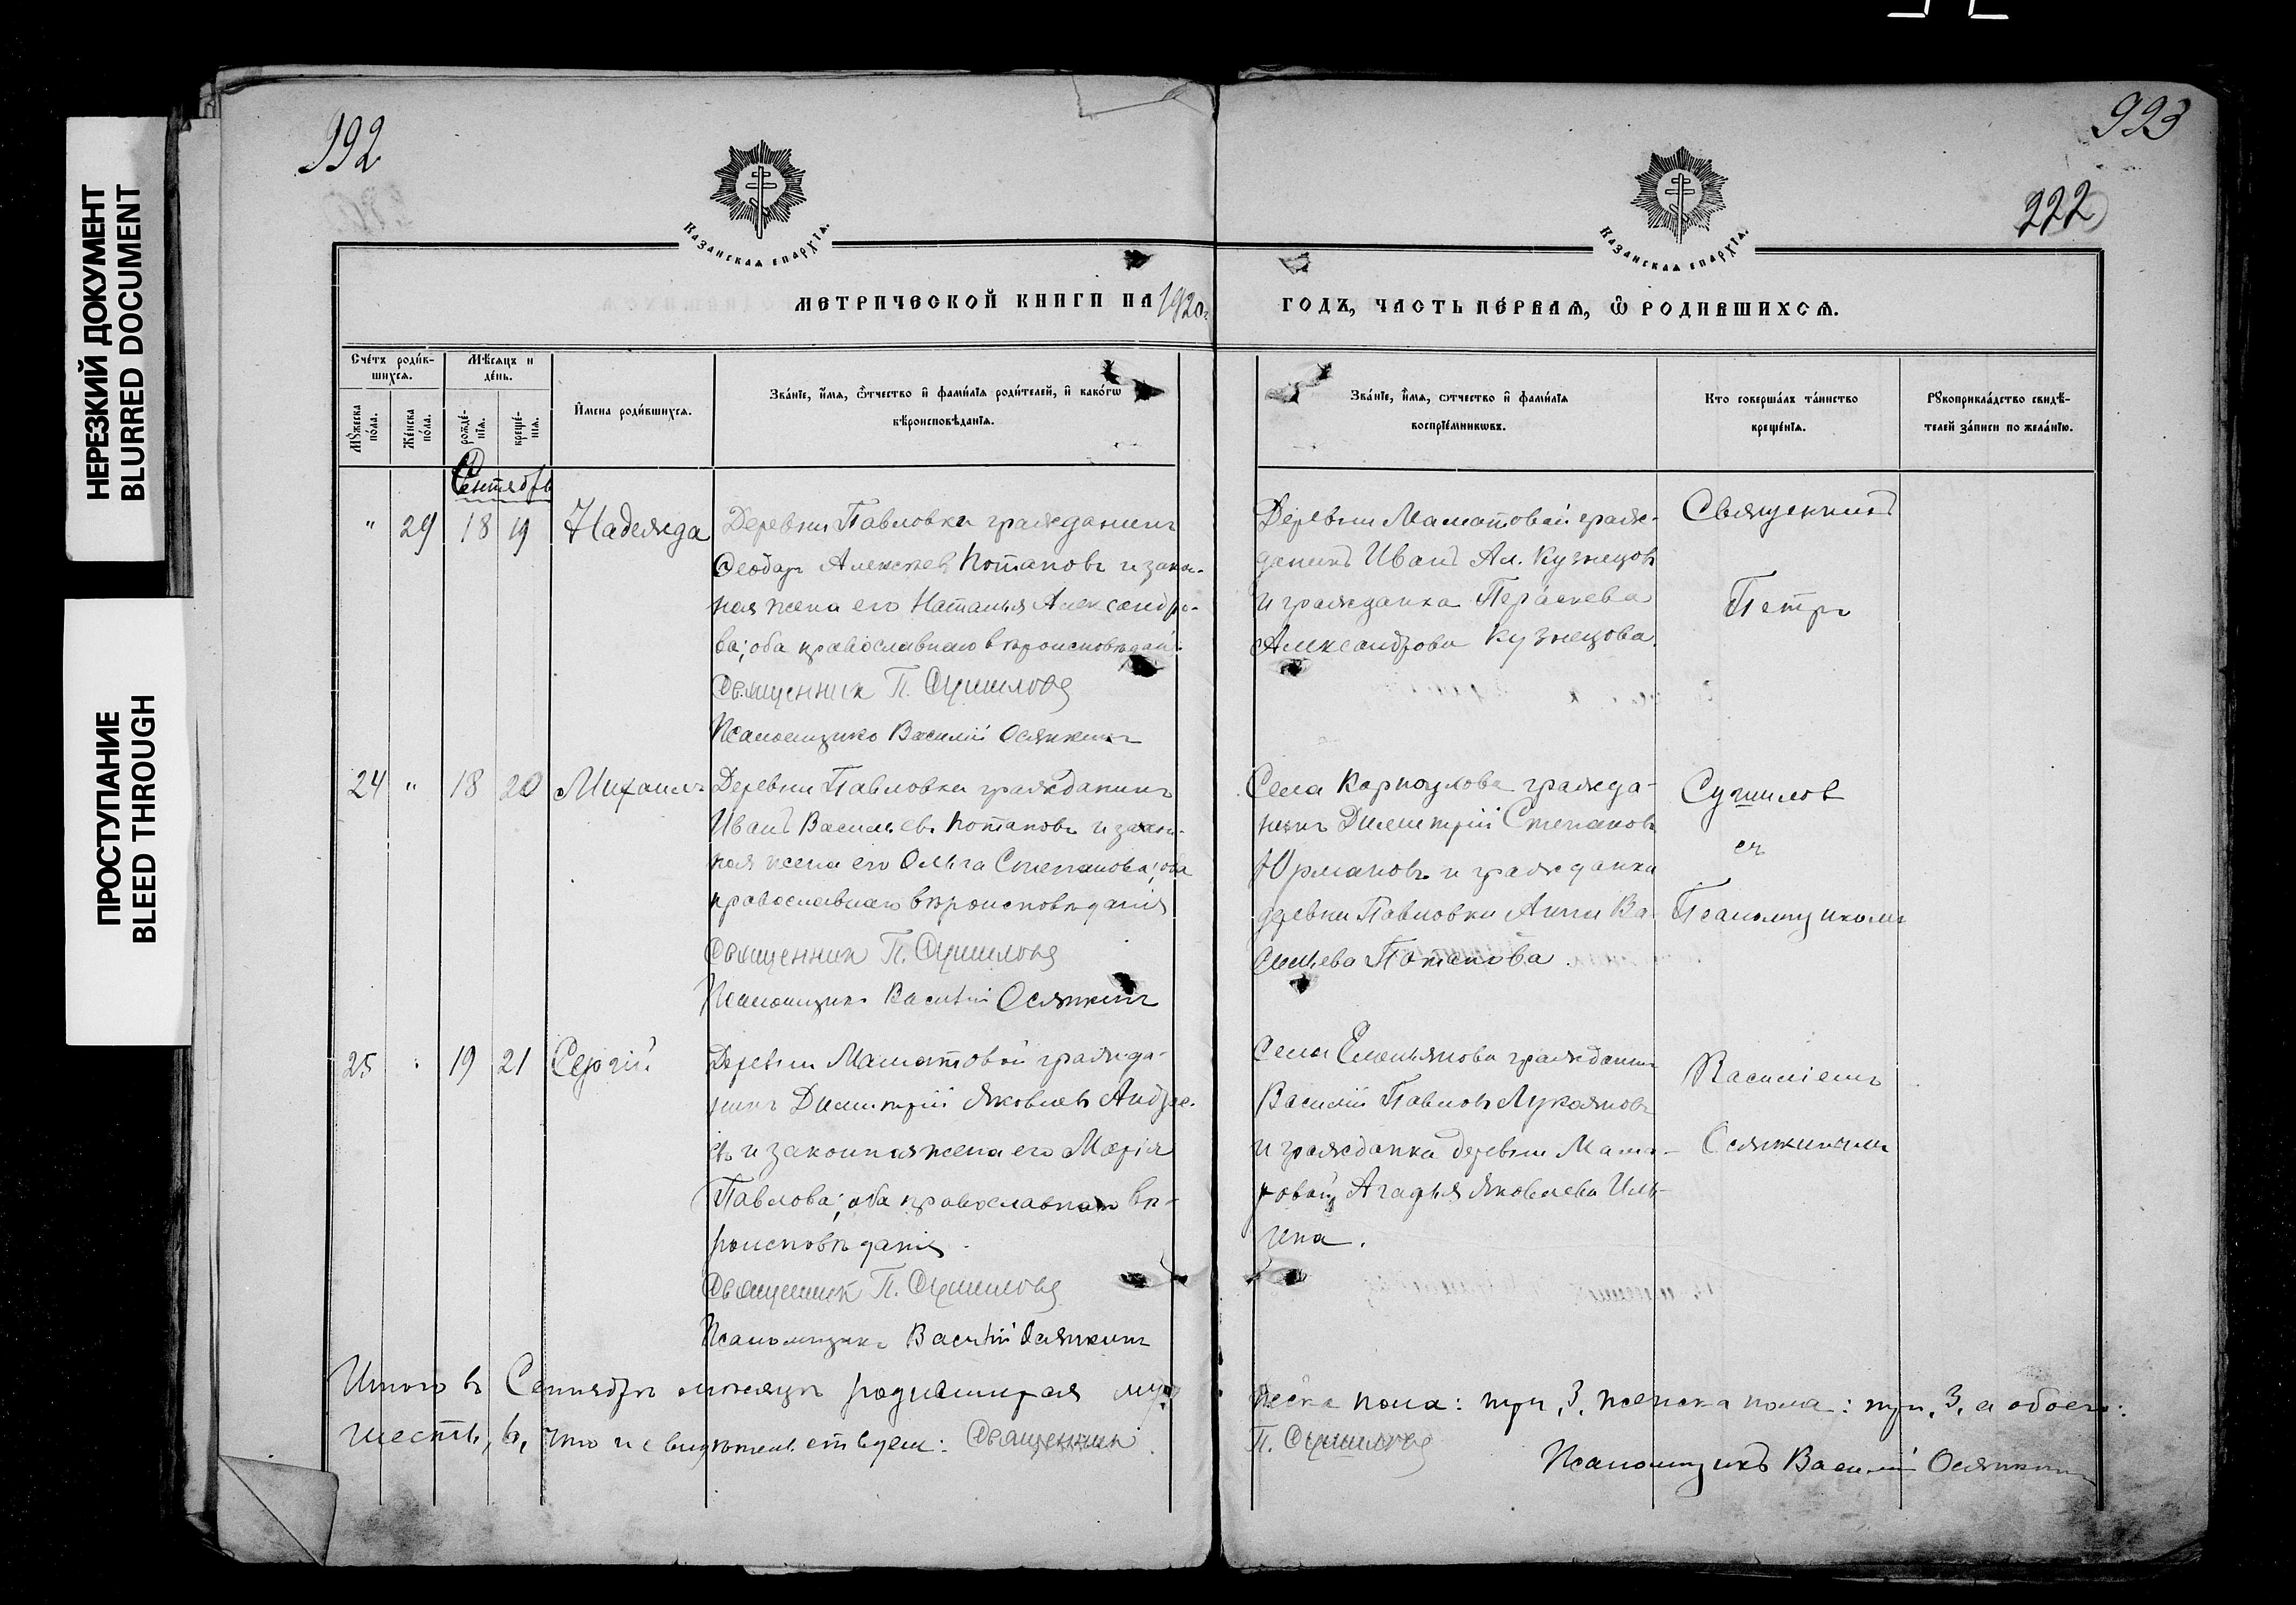 НЕРЕЗКИЙ ДОКУМЕНТ
BLURRED DOCUMENT
ПРОСТУПАНИЕ
BLEED THROUGH
992
923
222
Казанская епархїѧ.
Казанская епархїѧ.
МЕТРИЧЕСКОЙ КНИГИ НА 1920 г.
ГОДЪ, ЧАСТЬ ПЕРВАѦ, Ѽ РОДИВШИХСѦ.
Счéтъ роди́вшихсѧ.
Мꙋ́жеска по́ла.
Же́нска по́ла.
Мѣ́сѧцъ и де́нь.
рожде́нїѧ.
креще́нїѧ.
И́мена роди́вшихсѧ.
Зва́нїе, и́мѧ, ѻ́тчество и фами́лїѧ роди́телей, и како́гѡ
вѣроисповѣ́данїѧ.
Зва́нїе, и́мѧ, ѻ́тчество и фами́лїѧ
воспрїе́мникѡвъ.
Кто соверша́лъ та́инство
креще́нїѧ.
Рꙋкоприкла́дство свидѣ́-
телей за́писи по жела́нїю.
Сентябрь
" 29 18 19 Надежда
Деревни Павловки гражданинъ
Ѳеодоръ Алексѣевъ Потаповъ и закон-
ная жена его Наталья Александро-
ва; оба православнаго вѣроисповѣдан.
Священник П. Сушиловъ
Псаломщикъ Василій Осянкинъ
Деревни Маматовой граж-
данинъ Иванъ Ал. Кузнецовъ
и гражданка Параскева
Александрова Кузнецова.
Священникъ
Петръ
24 " 18 20 Михаилъ
Деревни Павловки гражданинъ
Иванъ Васильевъ Потаповъ и закон-
ная жена его Ольга Степанова; оба
православнаго вѣроисповѣданія
Священник П. Сушиловъ
Псаломщикъ Василій Осянкинъ
Села гражда-
нинъ Димитрій Степановъ
Юрмановъ и гражданка
деревни Павловки Анна Ва-
сильева Потапова.
Сушилов
съ
Псаломщикомъ
25 " 19 21 Сергій
Деревни Маматовой гражда-
нинъ Димитрій Яковлевъ Андре-
евъ и законная жена его Марія
Павлова; оба православнаго вѣ-
роисповѣданія.
Священник П. Сушиловъ
Псаломщикъ Василій Осянкинъ
Села Емельянова гражданинъ
Василій Павловъ Лукояновъ
и гражданка деревни Мама-
товой Агафья Яковлева Иль-
ина.
Василіемъ
Осянкинымъ
Итого въ Сентябрѣ мѣсяцѣ родившихся муж
жеска пола: три, 3, женска пола: три, 3, а обоего:
шесть, 6, что и свидѣтельствуем: Священник
П. Сушиловъ
Псаломщикъ Василій Осянкинъ